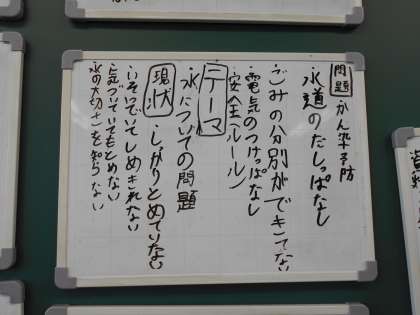 問題 かん染予防
水道のだしっぱなし
ごみの分別ができてない
電気のつけっぱなし
安全(ルール)
テーマ
水についての問題
現状 しっかりとめていない
いそいでいてしめきれない
気づいていてもとめない
水の大切さを知らない